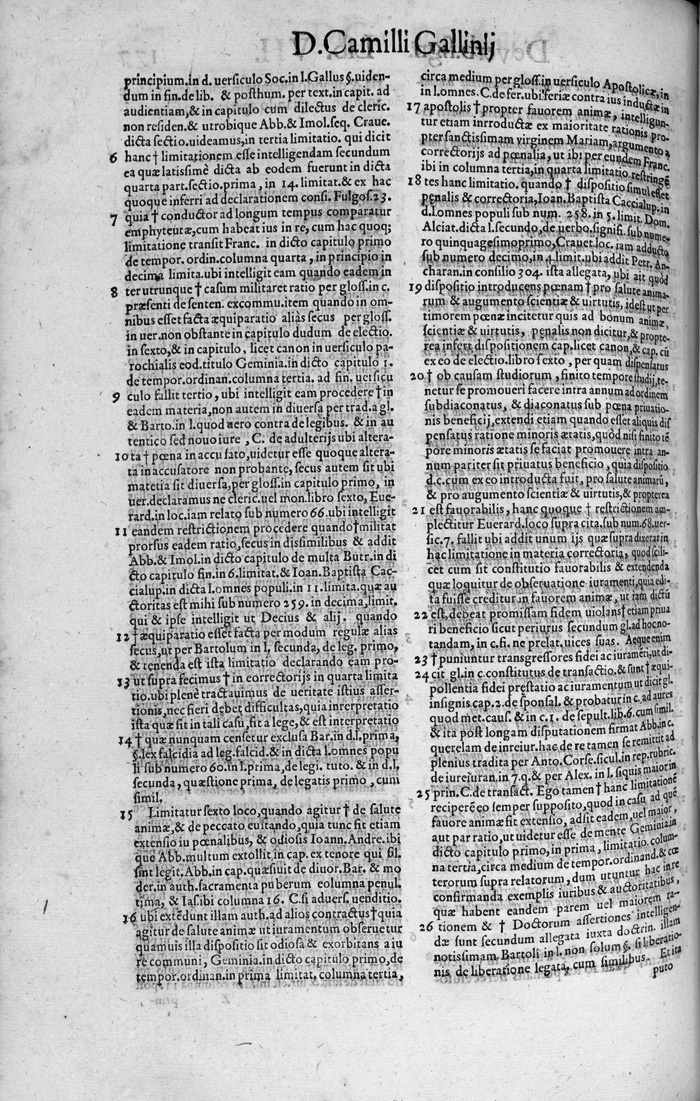 D. Camilli Gallinij
principium. in d. versiculo Soc. in l. Gallus §. uiden-
dum in fin. de lib. & posthum. per text. in capit. ad
audientiam, & in capitulo cum dilectus de cleric.
non residen. & utrobique Abb. & Imol. seq. Craue.
dicta sectio. uideamus, in tertia limitatio. qui dicit
6 hanc † limitationem esse intelligendam secundum
ea quæ latissimè dicta ab eodem fuerunt in dicta
quarta part. sectio. prima, in 14. limitat. & ex hac
quoque inferri ad declarationem consi. Fulgos. 23.
7 quia † conductor ad longum tempus comparatur
emphyteutæ, cum habeat ius in re, cum hac quoq;
limitatione transit Franc. in dicto capitulo primo
de tempor. ordin. columna quarta, in principio in
decima limita. ubi intelligit eam quando eadem in
8 ter utrunque † casum militaret ratio per gloss. in c.
præsenti de senten. excommu. item quando in om-
nibus esset facta æquiparatio aliàs secus per gloss.
in uer. non obstante in capitulo dudum de electio.
in sexto, & in capitulo, licet canon in uersiculo pa-
rochialis eod. titulo Geminia. in dicto capitulo 1.
de tempor. ordinan. columna tertia. ad fin. uersicu
9 culo fallit tertio, ubi intelligit eam procedere † in
eadem materia, non autem in diuersa per trad. a gl.
& Barto. in l. quod uero contra de legibus. & in au
tentico sed nouo iure, C. de adulterijs ubi altera-
10 ta † pœna in accusato, uidetur esse quoque altera-
ta in accusatore non probante, secus autem sit ubi
matetia sit diuersa, per gloss. in capitulo primo, in
uer. declaramus ne cleric. uel mon. libro sexto, Eue-
rard. in loc. iam relato sub numero 66. ubi intelligit
11 eandem restrictionem procedere quando † militat
prorsus eadem ratio, secus in dissimilibus & addit
Abb. & Imol. in dicto capitulo de multa Butr. in di
cto capitulo fin. in 6. limitat. & Ioan. Baptista Cac-
cialup. in dicta l. omnes populi. in 11. limita. quæ au
ctoritas est mihi sub numero 259. in decima, limit.
qui & ipse intelligit ut Decius & alij. quando
12 † æquiparatio esset facta per modum regulæ alias
secus, ut per Bartolum in l. secunda, de leg. primo,
& tenenda est ista limitatio declarando eam pro-
13 ut supra fecimus † in correctorijs in quarta limita
tio. ubi plenè tractauimus de ueritate istius asser-
tionis, nec fieri debet difficultas, quia inrerpretatio
ista quæ sit in tali casu, sit a lege, & est interpretatio
14 † quæ nunquam censetur exclusa Bar. in d. l. prima,
§. lex falcidia ad leg. falcid. & in dicta l. omnes popu
li sub numero 60. in l. prima, de legi. tuto. & in d. l.
secunda, quæstione prima, de legatis primo, cum
simil.
15 Limitatur sexto loco, quando agitur † de salute
animæ, & de peccato euitando, quia tunc fit etiam
extensio in pœnalibus, & odiosis Ioann. Andre. ibi
que Abb. multum extollit in cap. ex tenore qui fil.
sint legit. Abb. in cap. quæsiuit de diuor. Bar. & mo
der. in auth. sacramenta puberum columna penul.
tima, & Iasibi columna 16. C. si aduers. uenditio.
16 ubi extẽdunt illam auth. ad alios contractus † quia
agitur de salute animæ ut iuramentum obseruetur
quamuis illa dispositio sit odiosa & exorbitans a iu
re communi, Geminia. in dicto capitulo primo, de
tempor. ordinan. in prima limitat. columna tertia,
circa medium per gloss. in uersiculo Apostolicæ, in
in l. omnes. C. de fer. ubi feriæ contra ius inductæ in
17 apostolis † propter fauorem animæ, intelligun-
tur etiam introductæ ex maioritate rationis pro-
pter sanctissimam virginem Mariam, argumento a
correctorijs ad pœnalia, ut ibi per eundem Franc.
ibi in columna tertia, in quarta limitatio restringẽ
18 tes hanc limitatio. quando † dispositio simul esset
penalis & correctoria, Ioan. Baptista Caccialup. in
d. l. omnes populi sub num. 258. in 5. limit. Dom.
Alciat. dicta l. secundo, de uerbo. signifi. sub nume-
ro quinquagesimoprimo, Crauet. loc. iam adducto
sub numero decimo, in 4. limit. ubi addit Petr. An-
charan. in consilio 304. ista allegata, ubi ait quòd
19 dispositio introducens pœnam † pro salute anima-
rum & augumento scientiæ & uirtutis, idest ut per
timorem pœnæ incitetur quis ad bonum animæ,
scientiæ & uirtutis, penalis non dicitur, & propte-
rea infert dispositionem cap. licet canon, & cap. cũ
ex eo de electio. libro sexto, per quam dispensatus
20 † ob causam studiorum, finito tempore studij, te-
netur se promoueri facere intra annum ad ordinem
subdiaconatus, & diaconatus sub pœna priuatio-
nis beneficij, extendi etiam quando esset aliquis dis
pensatus ratione minoris ætatis, quòd nisi finito tẽ
pore minoris ætatis se faciat promouere intra an-
num pariter sit priuatus beneficio, quia dispositio
d. c. cum ex eo introducta fuit, pro salute animarũ,
& pro augumento scientiæ & uirtutis, & propterea
21 est fauorabilis, hanc quoque † restrictionem am-
plectitur Euerard. loco supra cita. sub num. 68. uer-
sic. 7. fallit ubi addit unum ijs quæ supra dixerat in
hac limitatione in materia correctoria, quòd scili-
cet cum sit constitutio fauorabilis & extendenda
quæ loquitur de obseruatione iuramenti, quia edi-
ta fuisse creditur in fauorem animæ, ut iam dictũ
22 est, debeat promissam fidem uiolans † etiam priua
ri beneficio sicut periurus secundum gl. ad hoc no-
tandam, in c. fi. ne prelat. uices suas. Aeque enim
23 † puniuntur transgressores fidei ac iuramẽti, ut di-
24 cit gl. in c. constitutus de transactio. & sunt † æqui-
pollentia fidei prestatio ac iuramentum ut dicit gl.
insignis cap. 2. de sponsal. & probatur in c. ad aures
quod met. caus. & in c. 1. de sepult. lib. 6. cum simil.
& ita post longam disputationem firmat Abb. in c.
querelam de inreiur. hac de re tamen se remittit ad
plenius tradita per Anto. Corse. sicul. in rep. rubric.
de iureiuran. in 7. q. & per Alex. in l. si quis maior in
25 prin. C. de transact. Ego tamen † hanc limitationẽ
reciperẽ eo semper supposito, quod in casu ad quẽ
fauore animæ fit extensio, adsit eadem, uel maior,
aut par ratio, ut uidetur esse de mente Geminia. in
dicto capitulo primo, in prima, limitatio. colum-
na tertia, circa medium de tempor. ordinand. & cæ
terorum supra relatorum, dum utuntur hac in re
confirmanda exemplis iuribus & auctoritatibus,
quæ habent eandem parem uel maiorem ra-
26 tionem & † Doctorum assertiones intelligen-
dæ sunt secundum allegata iuxta doctrin. illam
notissimam. Bartoli in l. non solum §. si liberatio-
nis de liberatione legata, cum similibus. Et ita
puto